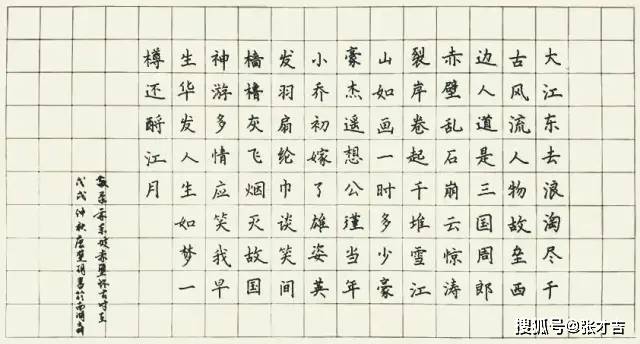 大江东去浪淘尽千
古风流人物故垒西
边人道是三国周郎
赤壁乱石崩云惊涛
裂岸卷起千堆雪江
山如画一时多少豪
豪杰遥想公瑾当年
小乔初嫁了雄姿英
发羽扇纶巾谈笑间
樯橹灰飞烟灭故国
神游多情应笑我早
生华发人生如梦一
樽还酹江月
敬录苏东坡赤壁怀古时在
戊戌仲秋唐楚明书于
搜狐号@张才吉